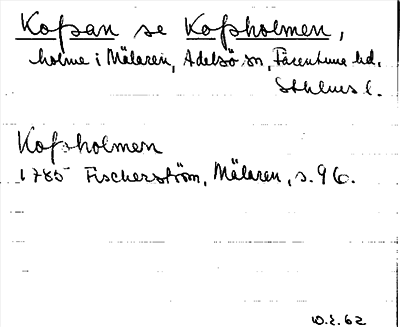 Kofsan se Kofsholmen,
holme i Mälaren, Adelsö sn, Färentuna hd.
Sthlms l.
Kofsholmen
1785 Fischerström, Mälaren, s. 96.
62